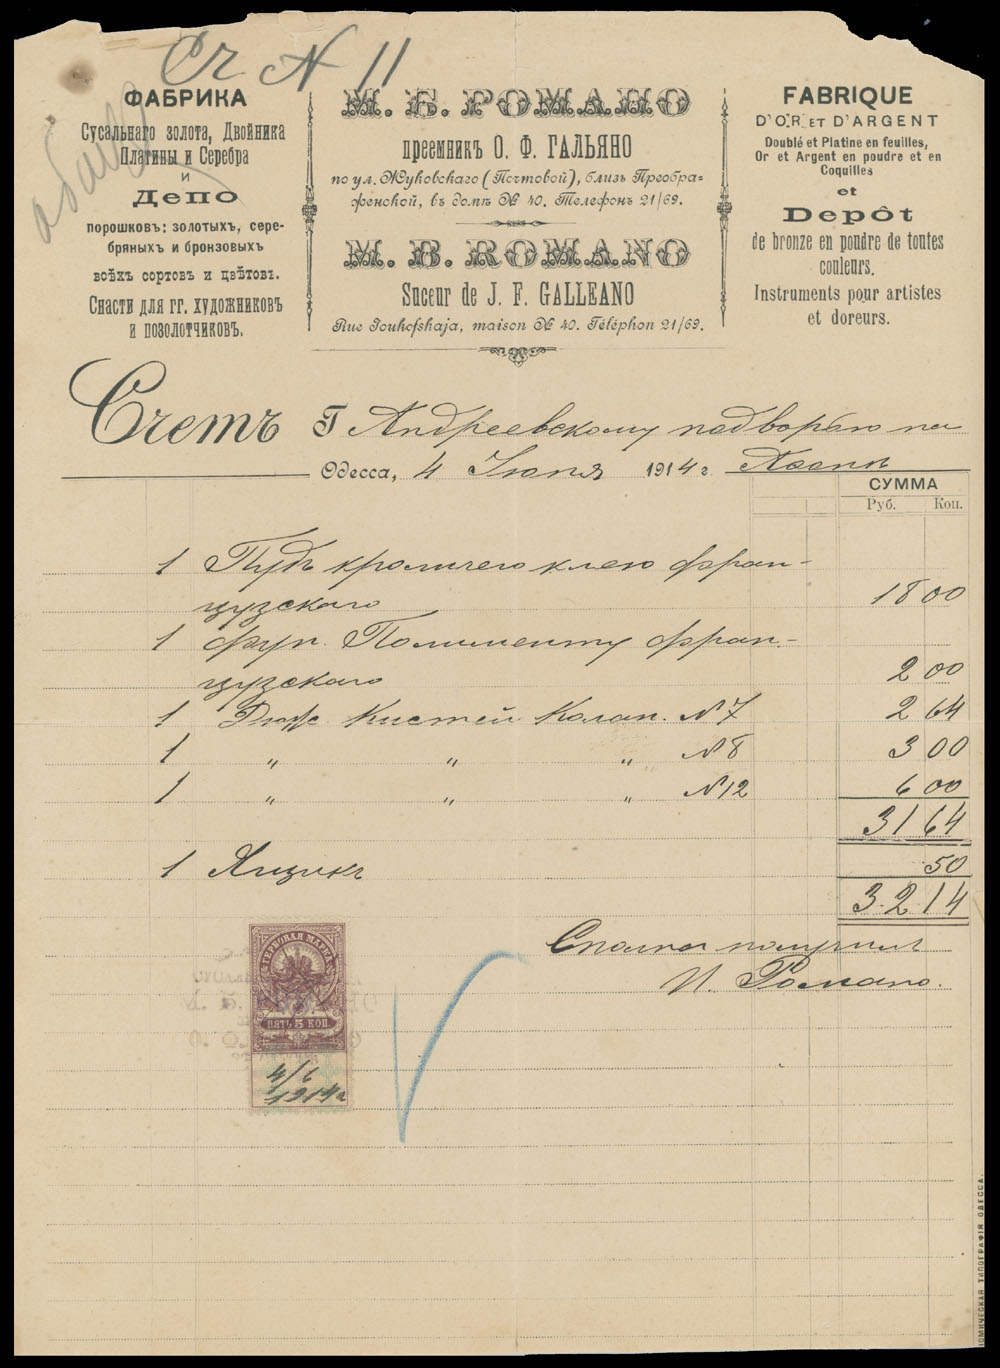 Сч N 11
ФАБРИКА
Сусальнаго золота, Двойника
Платины и Серебра
и
Депо
порошковъ; золотыхъ, сере-
бряныхъ и бронзовыхъ
всѣхъ сортов и цвѣтов.
Снасти для гг. художниковъ
и позолотчиковъ.
М. Б. РОМАНО
преемникъ О. Ф. ГАЛЬЯНО
по ул. Жуковскаго (Почтовой), близь Преобра=
женской, въ домѣ № 40. Телефонъ 21/69.
M. B. ROMANO
Suceur de J. F. GALLEANO
Rue Joukofskaja, maison № 40. Téléphon 21/69.
FABRIQUE
D'OR ET D'ARGENT
Doublé et Platine en feuilles,
Or et Argent en poudre et en
Coquilles
et
Depôt
de bronze en poudre de toutes
couleurs.
Instruments pour artistes
et doreurs.
Счетъ Г Андреевскому подворью на
Одесса, 4 Іюня 1914 г. Афонѣ
СУММА
Руб. Коп.
1 Пудъ кроличего клею фран-
цузскаго 18 00
1 фун. Полименту фран-
цузскаго 2 00
1 Дюж Кистей Колан. N 7 2 64
1 " " " N 8 3 00
1 " " " N 12 6 00
31 64
1 Ящикъ 50
32 14
Сполна получилъ
И. Романо.
ГЕРБОВАЯ МАРКА
ПЯТЬ 5 КОП
4/6
1914 г
НОМИЧЕСКАЯ ТИПОГРАФІЯ ОДЕССА.